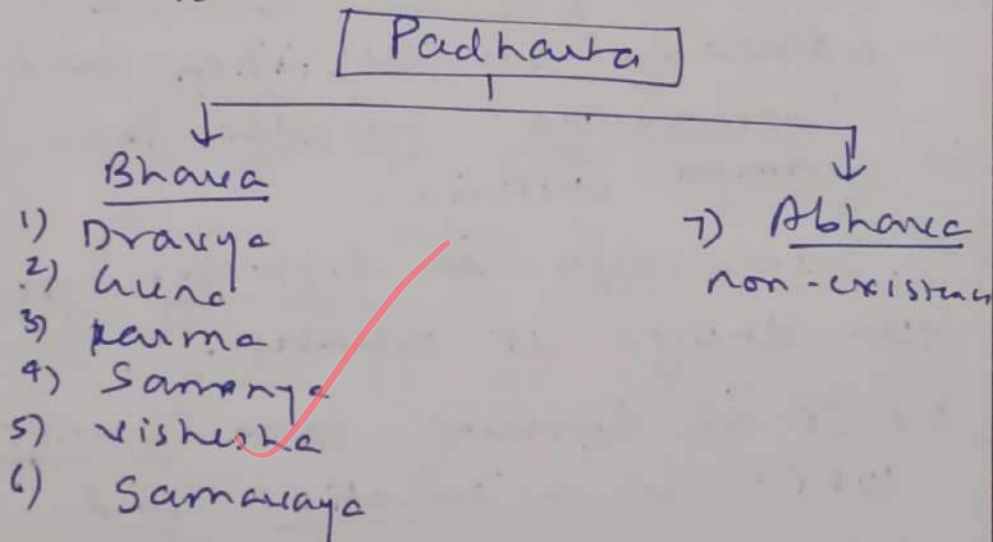 Padharta
Bhava
1) Dravya
2) Guna
3) Karma
4) Samanya
5) Vishesha
6) Samavaya
7) Abhava
non-existence